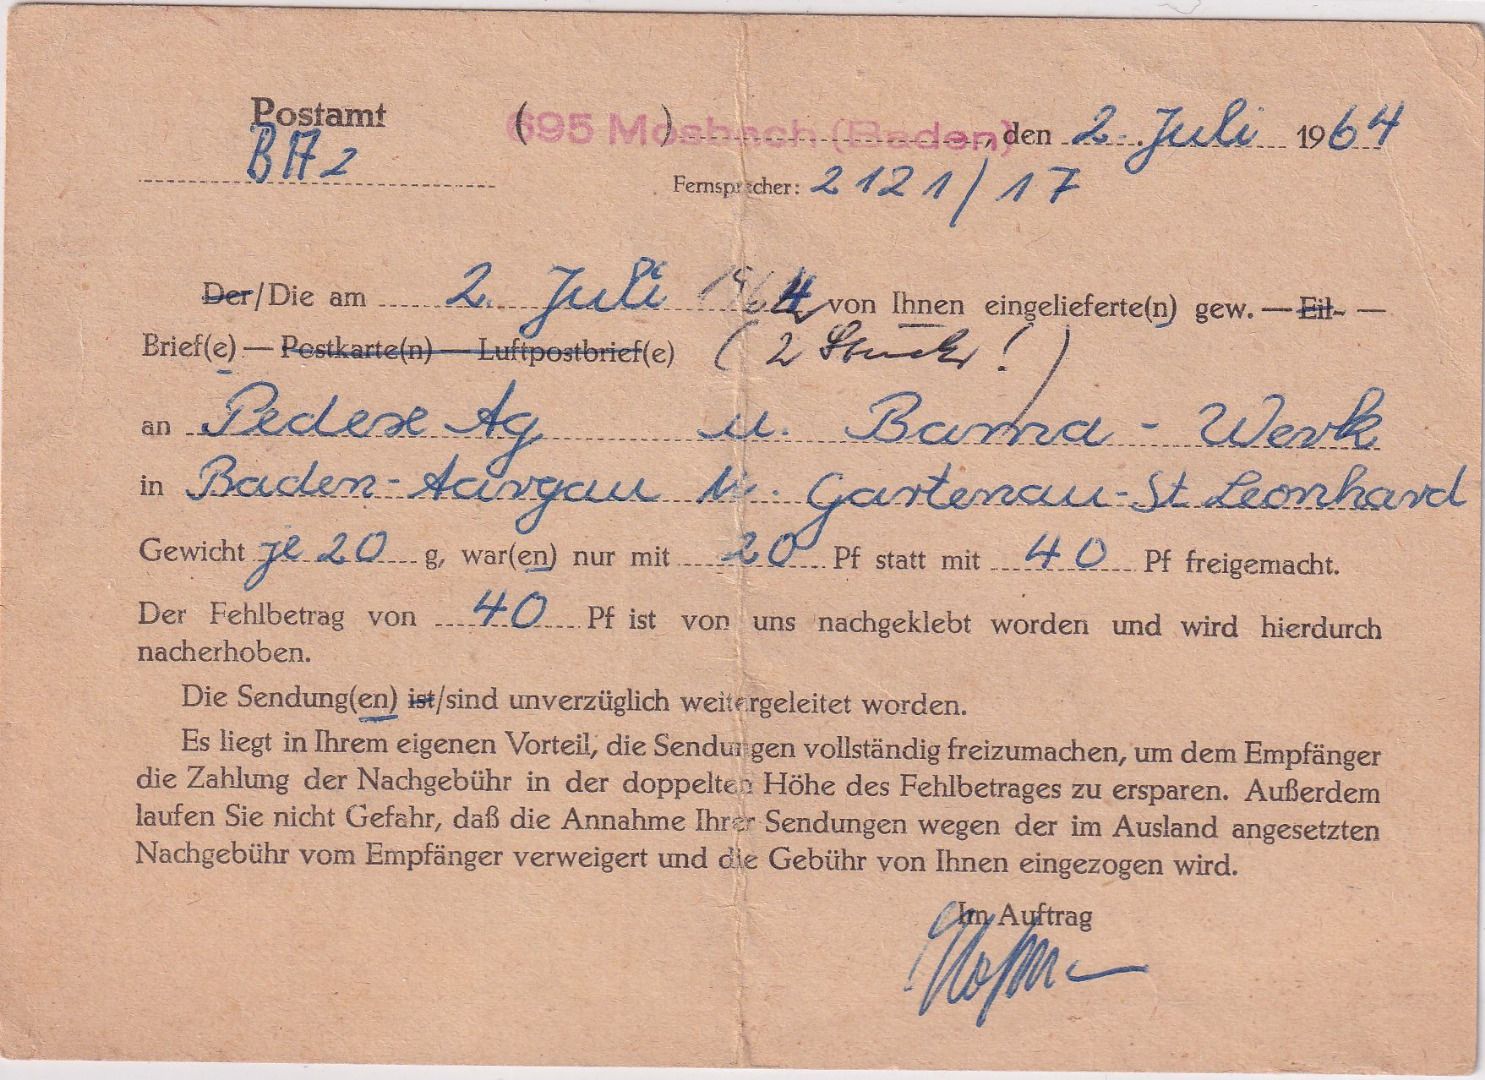 Postamt (695 Mosbach (Baden)), den 2. Juli 1964
BA 2
Fernsprecher: 2121/17
Der/Die am 2. Juli 1964 von Ihnen eingelieferte(n) gew. — Eil- —
Brief(e) — Postkarte(n) — Luftpostbrief(e) (2 Stück!)
an Pedexe Ag u. Bama-Werk
in Baden-Aargau u. Gartenau-St Leonhard
Gewicht je 20 g, war(en) nur mit 20 Pf statt mit 40 Pf freigemacht.
Der Fehlbetrag von 40 Pf ist von uns nachgeklebt worden und wird hierdurch
nacherhoben.
Die Sendung(en) ist/sind unverzüglich weitergeleitet worden.
Es liegt in Ihrem eigenen Vorteil, die Sendungen vollständig freizumachen, um dem Empfänger
die Zahlung der Nachgebühr in der doppelten Höhe des Fehlbetrages zu ersparen. Außerdem
laufen Sie nicht Gefahr, daß die Annahme Ihrer Sendungen wegen der im Ausland angesetzten
Nachgebühr vom Empfänger verweigert und die Gebühr von Ihnen eingezogen wird.
Im Auftrag